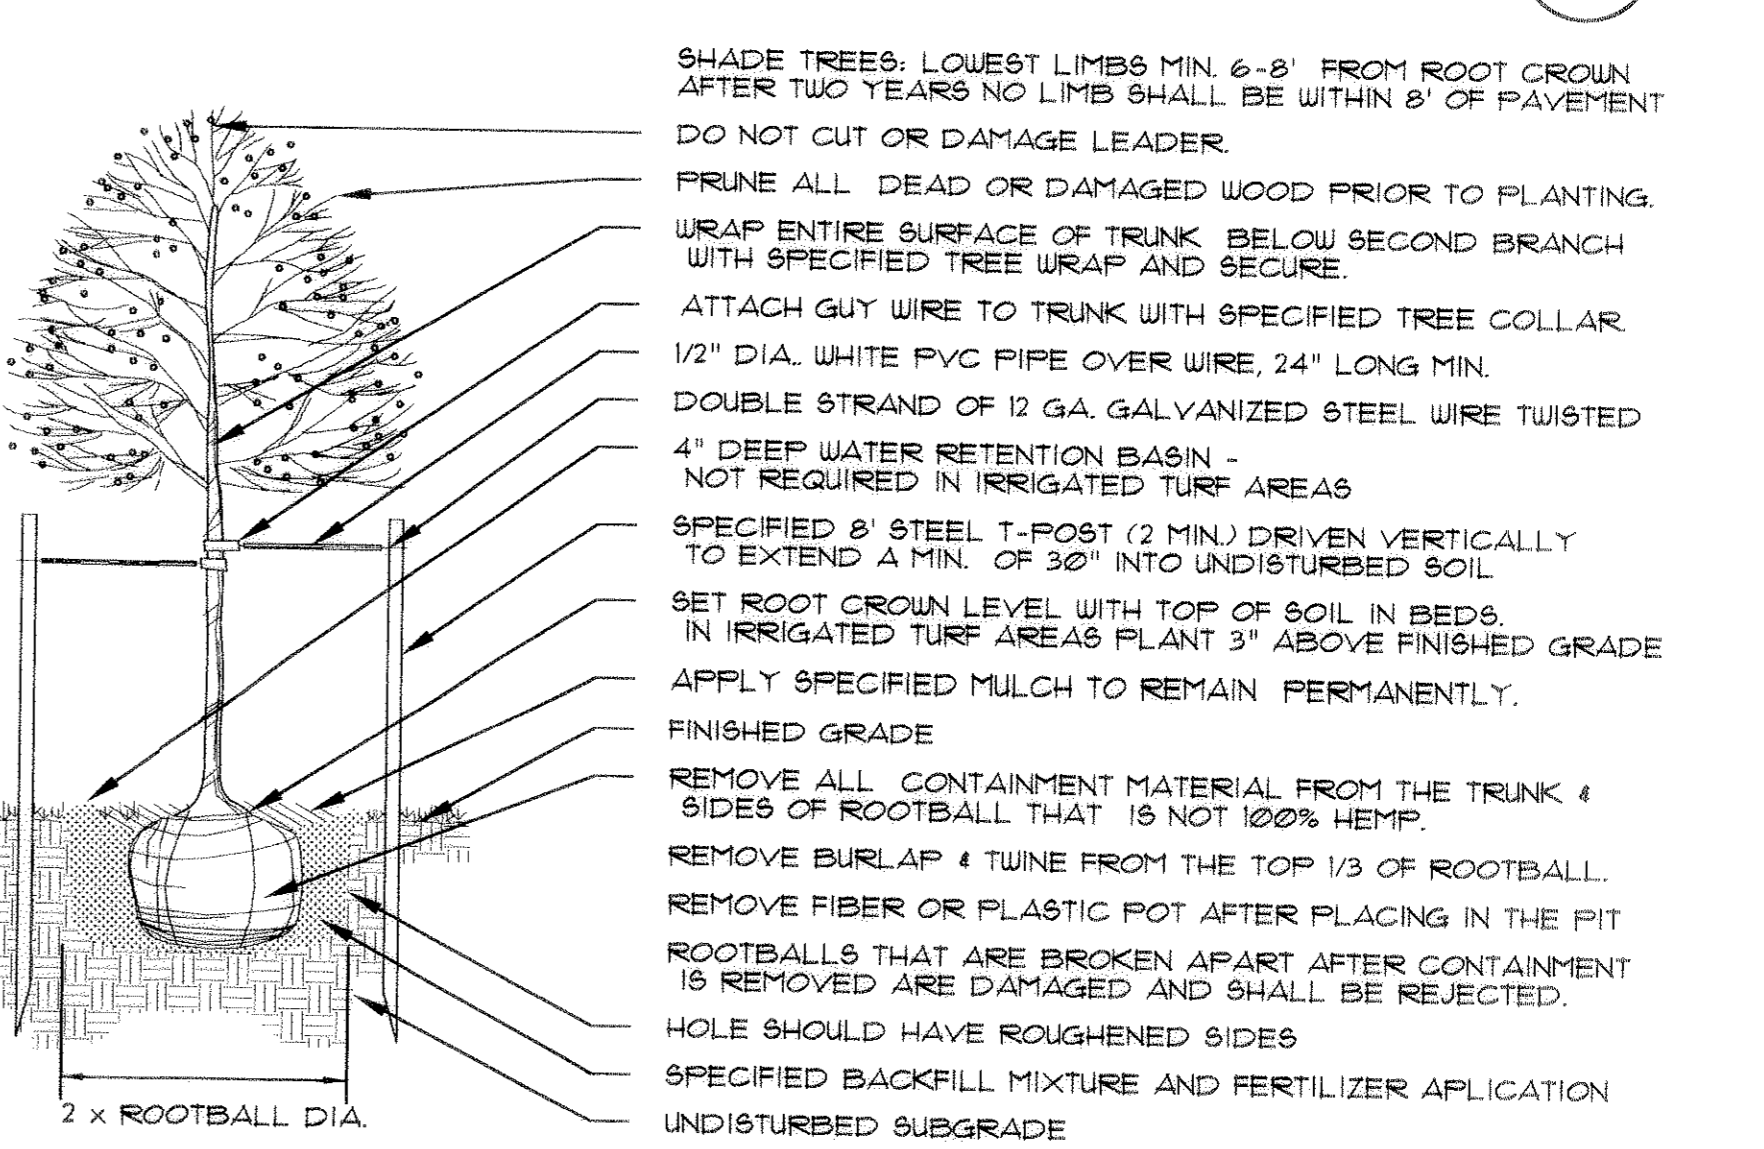 SHADE TREES: LOWEST LIMBS MIN. 6-8' FROM ROOT CROWN
AFTER TWO YEARS NO LIMB SHALL BE WITHIN 8' OF PAVEMENT
DO NOT CUT OR DAMAGE LEADER.
PRUNE ALL DEAD OR DAMAGED WOOD PRIOR TO PLANTING.
WRAP ENTIRE SURFACE OF TRUNK BELOW SECOND BRANCH
WITH SPECIFIED TREE WRAP AND SECURE.
ATTACH GUY WIRE TO TRUNK WITH SPECIFIED TREE COLLAR
1/2" DIA.. WHITE PVC PIPE OVER WIRE, 24" LONG MIN.
DOUBLE STRAND OF 12 GA. GALVANIZED STEEL WIRE TWISTED
4" DEEP WATER RETENTION BASIN -
NOT REQUIRED IN IRRIGATED TURF AREAS
SPECIFIED 8' STEEL T-POST (2 MIN.) DRIVEN VERTICALLY
TO EXTEND A MIN. OF 30" INTO UNDISTURBED SOIL
SET ROOT CROWN LEVEL WITH TOP OF SOIL IN BEDS.
IN IRRIGATED TURF AREAS PLANT 3" ABOVE FINISHED GRADE
APPLY SPECIFIED MULCH TO REMAIN PERMANENTLY.
FINISHED GRADE
REMOVE ALL CONTAINMENT MATERIAL FROM THE TRUNK &
SIDES OF ROOTBALL THAT IS NOT 100% HEMP.
REMOVE BURLAP & TWINE FROM THE TOP 1/3 OF ROOTBALL.
REMOVE FIBER OR PLASTIC POT AFTER PLACING IN THE PIT
ROOTBALLS THAT ARE BROKEN APART AFTER CONTAINMENT
IS REMOVED ARE DAMAGED AND SHALL BE REJECTED.
HOLE SHOULD HAVE ROUGHENED SIDES
SPECIFIED BACKFILL MIXTURE AND FERTILIZER APLICATION
UNDISTURBED SUBGRADE
2 x ROOTBALL DIA.